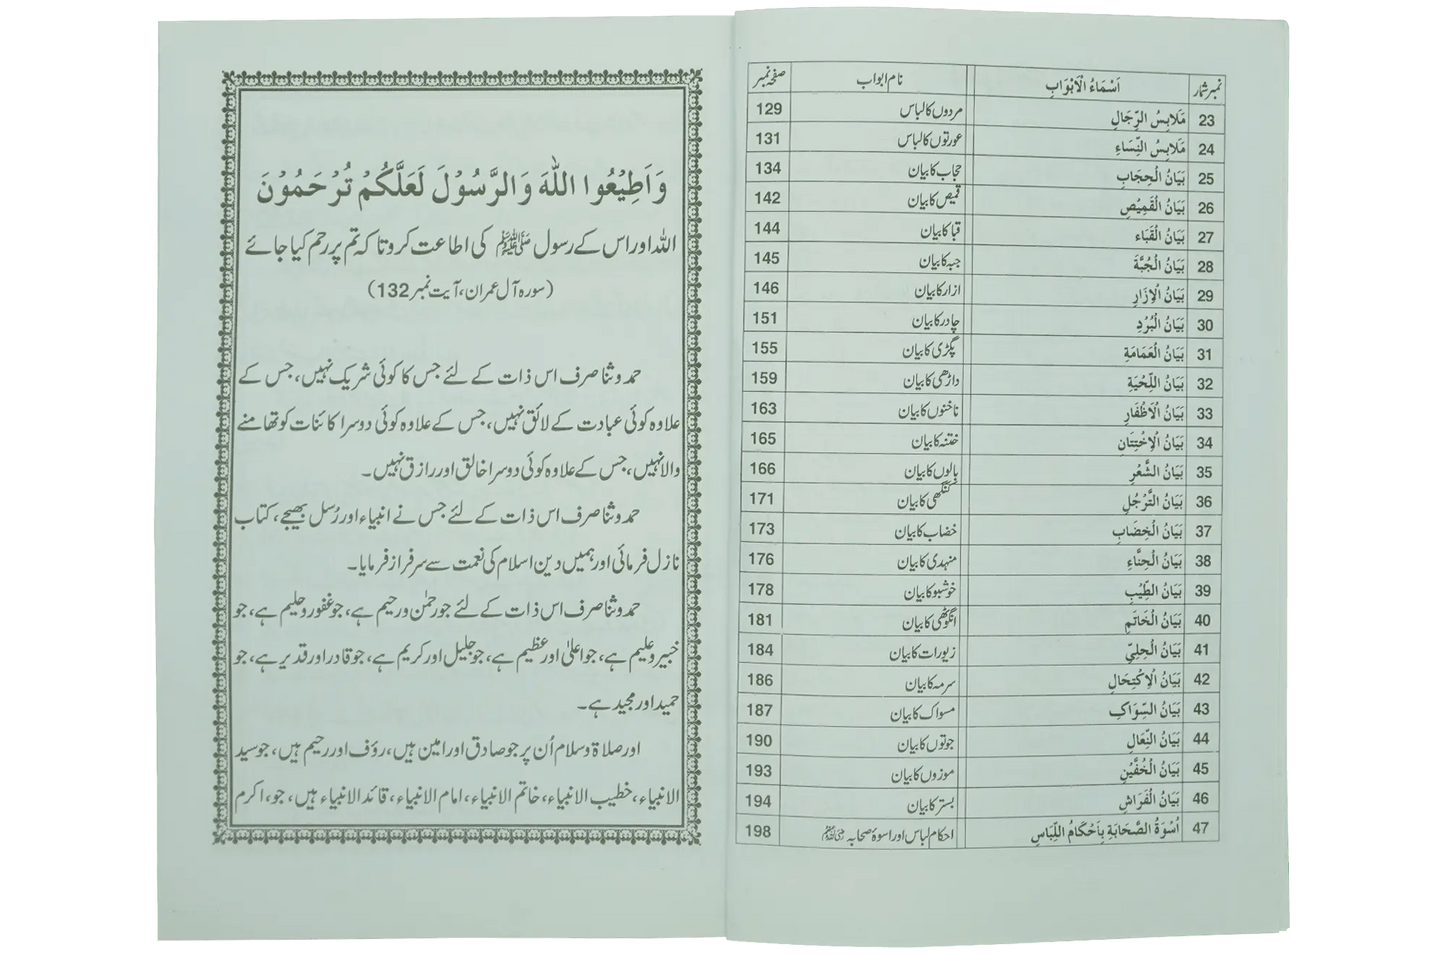 نمبر شمار اَسْمَاءُ الْاَبْوَابِ نام ابواب صفحہ نمبر
23 مَلَابِسُ الرِّجَالِ مردوں کا لباس 129
24 مَلَابِسُ النِّسَاءِ عورتوں کا لباس 131
25 بَيَانُ الْحِجَابِ حجاب کا بیان 134
26 بَيَانُ الْقَمِيْصِ قمیص کا بیان 142
27 بَيَانُ الْقَبَاء قبا کا بیان 144
28 بَيَانُ الْجُبَّةَ جبہ کا بیان 145
29 بَيَانُ الْاِزَارِ ازار کا بیان 146
30 بَيَانُ الْبُرْدِ چادر کا بیان 151
31 بَيَانُ الْعَمَامَةِ پگڑی کا بیان 155
32 بَيَانُ اللِّحْيَةِ داڑھی کا بیان 159
33 بَيَانُ الْاَظْفَارِ ناخنوں کا بیان 163
34 بَيَانُ الْاِخْتِتَان ختنہ کا بیان 165
35 بَيَانُ الشَّعْرِ بالوں کا بیان 166
36 بَيَانُ التَّرَجُلِ کنگھی کا بیان 171
37 بَيَانُ الْخِضَابِ خضاب کا بیان 173
38 بَيَانُ الْحِنَّاءِ منہدی کا بیان 176
39 بَيَانُ الطِّيْبِ خوشبو کا بیان 178
40 بَيَانُ الْخَاتَمِ انگوٹھی کا بیان 181
41 بَيَانُ الْحِلِيِّ زیورات کا بیان 184
42 بَيَانُ الْاِكْتِحَالِ سرمہ کا بیان 186
43 بَيَانُ السِّوَاكِ مسواک کا بیان 187
44 بَيَانُ النِّعَالِ جوتوں کا بیان 190
45 بَيَانُ الْخُفَّيْنِ موزوں کا بیان 193
46 بَيَانُ الْفَرَاشِ بستر کا بیان 194
47 اُسْوَةُ الصَّحَابَةِ بِاَحْكَامُ اللِّبَاسِ احکام لباس اور اسوۂ صحابہ 198
وَاَطِيْعُوا اللّٰهَ وَالرَّسُوْلَ لَعَلَّكُمْ تُرْحَمُوْنَ
اللہ اور اس کے رسول ﷺ کی اطاعت کرو تا کہ تم پر رحم کیا جائے
(سورہ آل عمران، آیت نمبر 132)
حمد و ثنا صرف اس ذات کے لئے جس کا کوئی شریک نہیں، جس کے
علاوہ کوئی عبادت کے لائق نہیں، جس کے علاوہ کوئی دوسرا کائنات کو تھامنے
والا نہیں، جس کے علاوہ کوئی دوسرا خالق اور رازق نہیں۔
حمد و ثنا صرف اس ذات کے لئے جس نے انبیاء اور رُسل بھیجے، کتاب
نازل فرمائی اور ہمیں دین اسلام کی نعمت سے سرفراز فرمایا۔
حمد و ثنا صرف اس ذات کے لئے جو رحمٰن و رحیم ہے، جو غفور و حلیم ہے، جو
خبیر و علیم ہے، جو اعلیٰ اور عظیم ہے، جو جلیل اور کریم ہے، جو قادر اور قدیر ہے، جو
حمید اور مجید ہے۔
اور صلاۃ و سلام اُن پر جو صادق اور امین ہیں، رؤف اور رحیم ہیں، جو سید
الانبیاء، خطیب الانبیاء، خاتم الانبیاء، امام الانبیاء، قائد الانبیاء ہیں، جو، اکرم